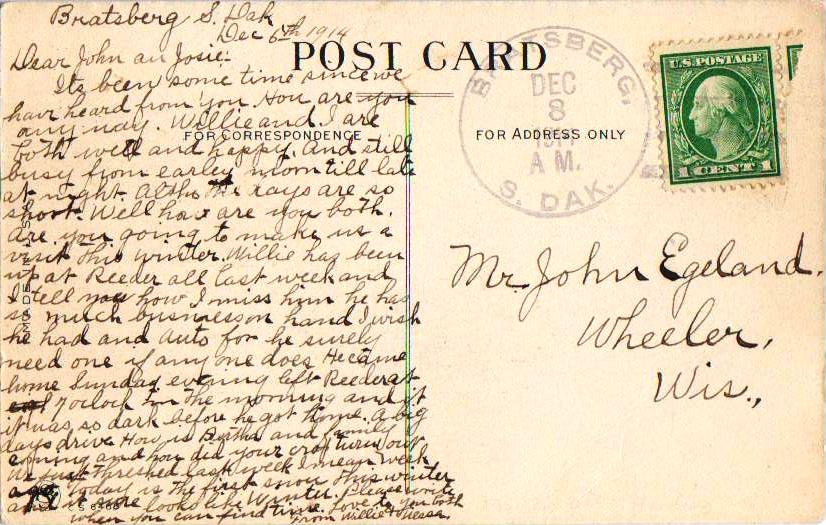 Bratsberg S. Dak
Dec 6th 1914
Dear John an Josie:
Its been some time since we
have heard from you. How are you
any way. Willie and I are
both well and happy. And still
busy from earley morn till late
at night. Altho the days are so
short. Well how are you both.
Are you going to make us a
visit this winter. Willie has been
up at Reeder all last week and
I tell you how I miss him he has
so much business on hand I wish
he had and auto for he surely
need one if any one does He came
home Sunday evening left Reeder at
7 oclock in the morning and
it was so dark before he got home. A big
days drive How is Bertha and family
coming and how did your crop turn out
We just threshed last week I mean week
ago today is the first snow this winter
and it sure looks like Winter. Please write
when you can find time. Love to you both
from Willie + Tessa
POST CARD
FOR CORRESPONDENCE
FOR ADDRESS ONLY
BRATSBERG,
DEC
8
A M.
S. DAK.
U.S. POSTAGE
1 CENT 1
Mr. John Egeland.
Wheeler,
Wis.,